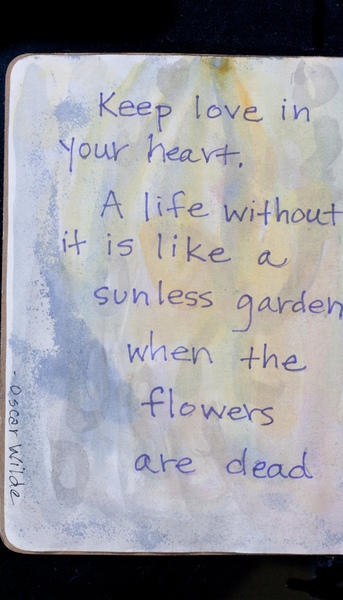 Keep love in
your heart.
A life without
it is like a
sunless garden
when the
flowers
are dead
-oscar Wilde